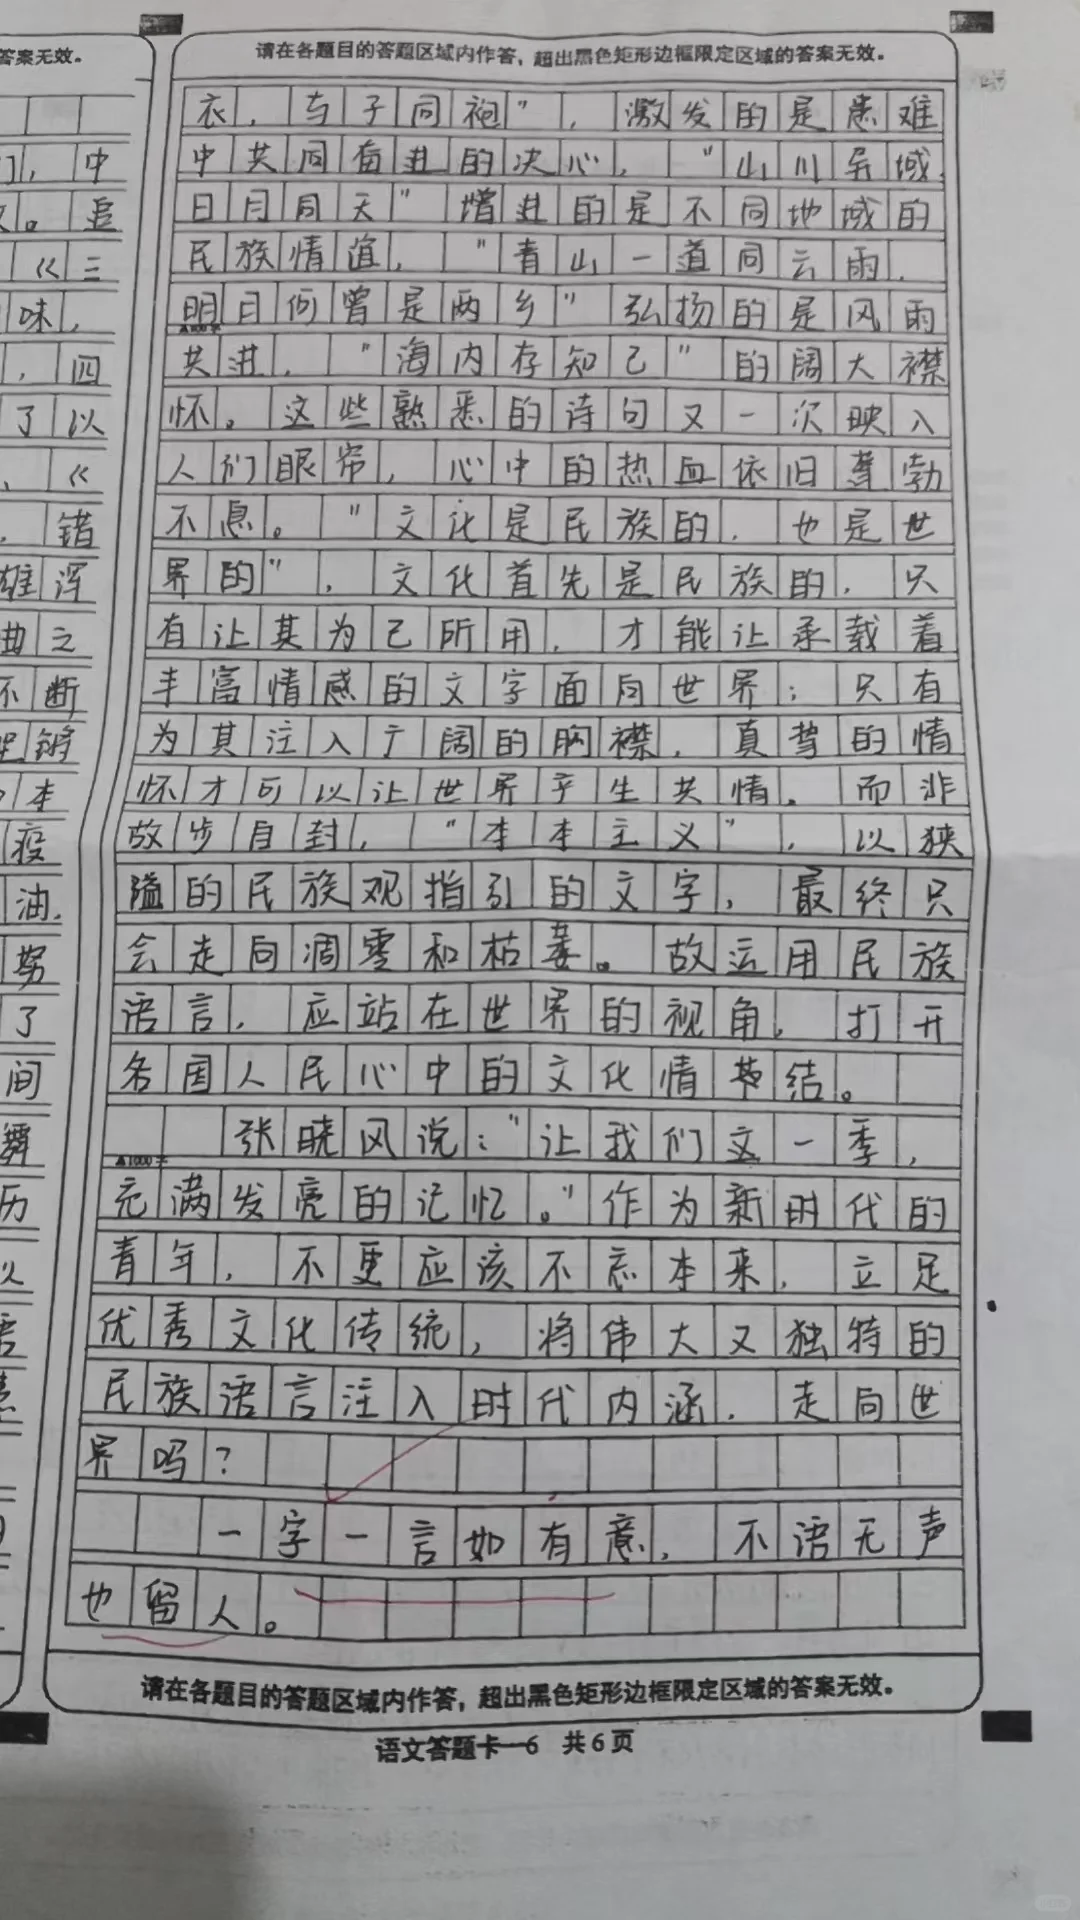 答案无效。
请在各题目的答题区域内作答，超出黑色矩形边框限定区域的答案无效。
中
追
《三
味，
，四
了以
、《
，错
雄浑
曲之
不断
本
疫
油，
努
了
间
舞
历
以
衣，与子同袍"，激发的是患难
中共同奋进的决心，"山川异域，
日月同天"增进的是不同地域的
民族情谊，"青山一道同云雨，
明日何曾是两乡"弘扬的是风雨
▲800字
共进，"海内存知己"的阔大襟
怀。这些熟悉的诗句又一次映入
人们眼帘，心中的热血依旧蓬勃
不息。"文化是民族的，也是世
界的"，文化首先是民族的，只
有让其为己所用，才能让承载着
丰富情感的文字面向世界；只有
为其注入于阔的胸襟，真挚的情
怀才可以让世界产生共情。而非
故步自封，"本本主义"，以狭
隘的民族观指引的文字，最终只
会走向凋零和枯萎。故运用民族
语言，应站在世界的视角，打开
各国人民心中的文化情结。
张晓风说："让我们这一季，
▲1000字
充满发亮的记忆。"作为新时代的
青年，不更应该不忘本来，立足
优秀文化传统，将伟大又独特的
民族语言注入时代内涵，走向世
界吗？
一字一言如有意，不语无声
也留人。
请在各题目的答题区域内作答，超出黑色矩形边框限定区域的答案无效。
语文答题卡—6 共6页